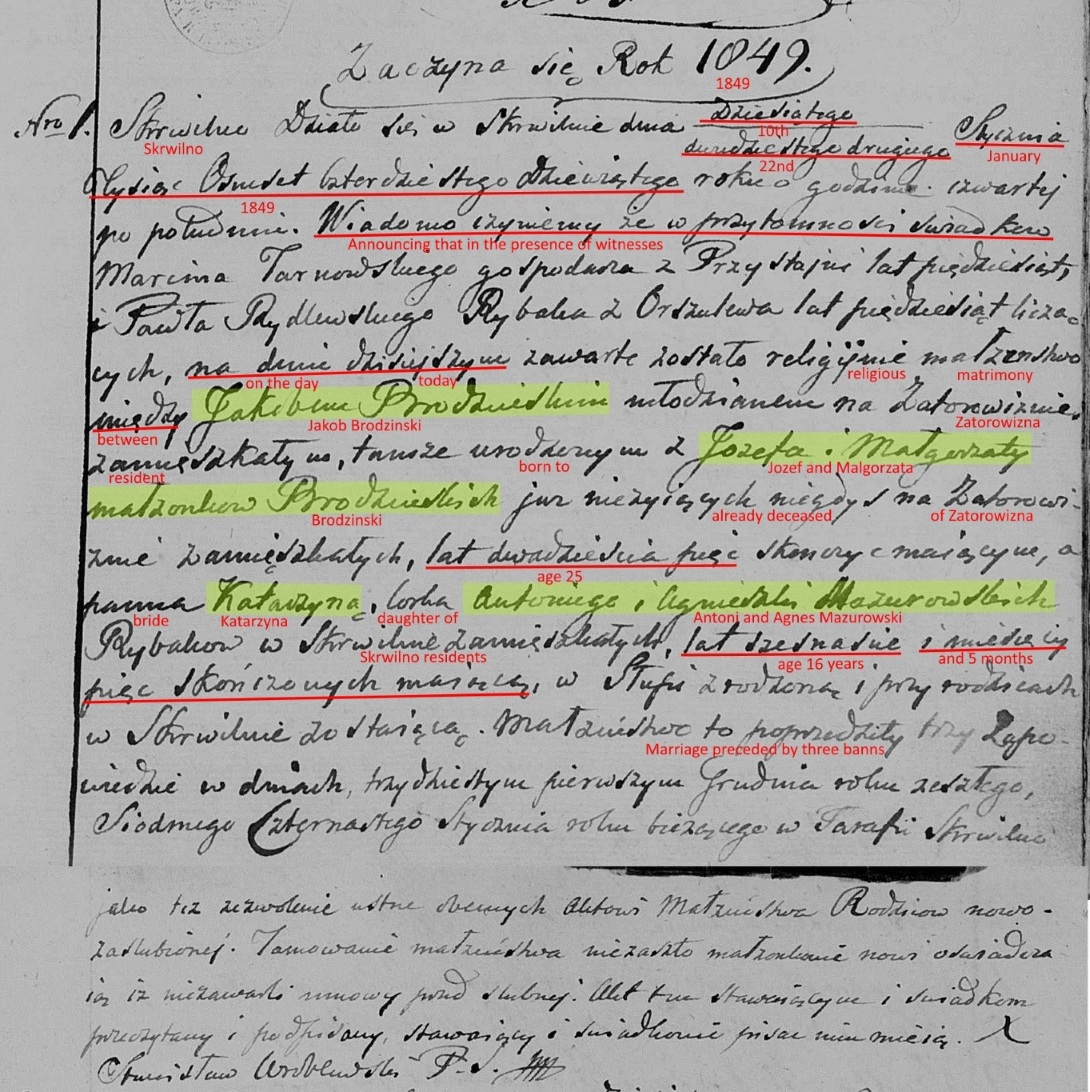 Zaczyna się Rok 1849.
1849
Nro 1. Skrwilno Działo się w Skrwilnie dnia Dziesiątego Stycznia
Skrwilno 10th January
dwudziestego drugiego
22nd
Tysiąc Osmset Czterdziestego Dziewiątego roku o godzinie czwartej
1849
po południu. Wiadomo czyniemy że w przytomności świadków
Announcing that in the presence of witnesses
Marcina Tarnowskiego gospodarza z Przystajni lat pięćdziesiąt,
i Pawła Rydlewskiego Rybaka z Orszulewa lat pięćdziesiąt licza-
cych, na dniu dzisiejszym zawarte zostało religijnie małżeństwo
on the day today religious matrimony
między Jakobem Brodzieńskim młodzianem na Zatorowiznie
between Jakob Brodzinski Zatorowizna
zamięszkałym, tamże urodzonym z Jozefa i Małgorzaty
resident born to Jozef and Malgorzata
małżonkow Brodzieńskich już nieżyjących niegdys na Zatorowi-
Brodzinski already deceased of Zatorowizna
znie zamięszkałych, lat dwadzieścia pięć skończyc maiącym, a
age 25
panna Katarzyną, Corką Antoniego i Agnieszki Mazurowskich
bride Katarzyna daughter of Antoni and Agnes Mazurowski
Rybakow w Skrwilnie zamięszkałych, lat szesnaście i miesięcy
Skrwilno residents age 16 years and 5 months
pięć skończonych maiącą, w Słupi zrodzoną i przy rodzicach
w Skrwilnie zostaiącą. Małżeństwo to poprzedziły trzy Zapo-
Marriage preceded by three banns
wiedzie w dniach, trzydziestym pierwszym Grudnia roku zeszłego,
Siodmego Czternastego Stycznia roku bieżącego w Parafii Skrwilno
jako też zezwolenie ustne obecnych Aktowi Małżeństwa Rodzicow nowo-
zaślubionej. Tamowanie małżeństwa niezaszło małżonkowie nowi oświadcza-
ią iż niezawarli umowy przed ślubnej. Akt ten stawaiącym i świadkom
przeczytany i podpisany, stawaiący i świadkowie pisac nieumieią.
Stanisław Wroblewski P. S.